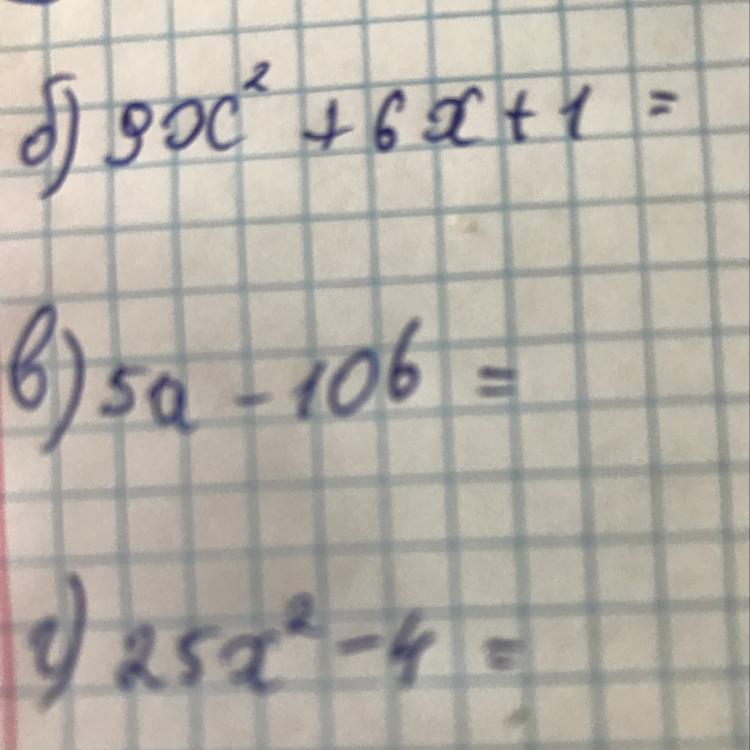 б) 9x² + 6x + 1 =
в) 5a - 10b =
г) 25x² - 4 =